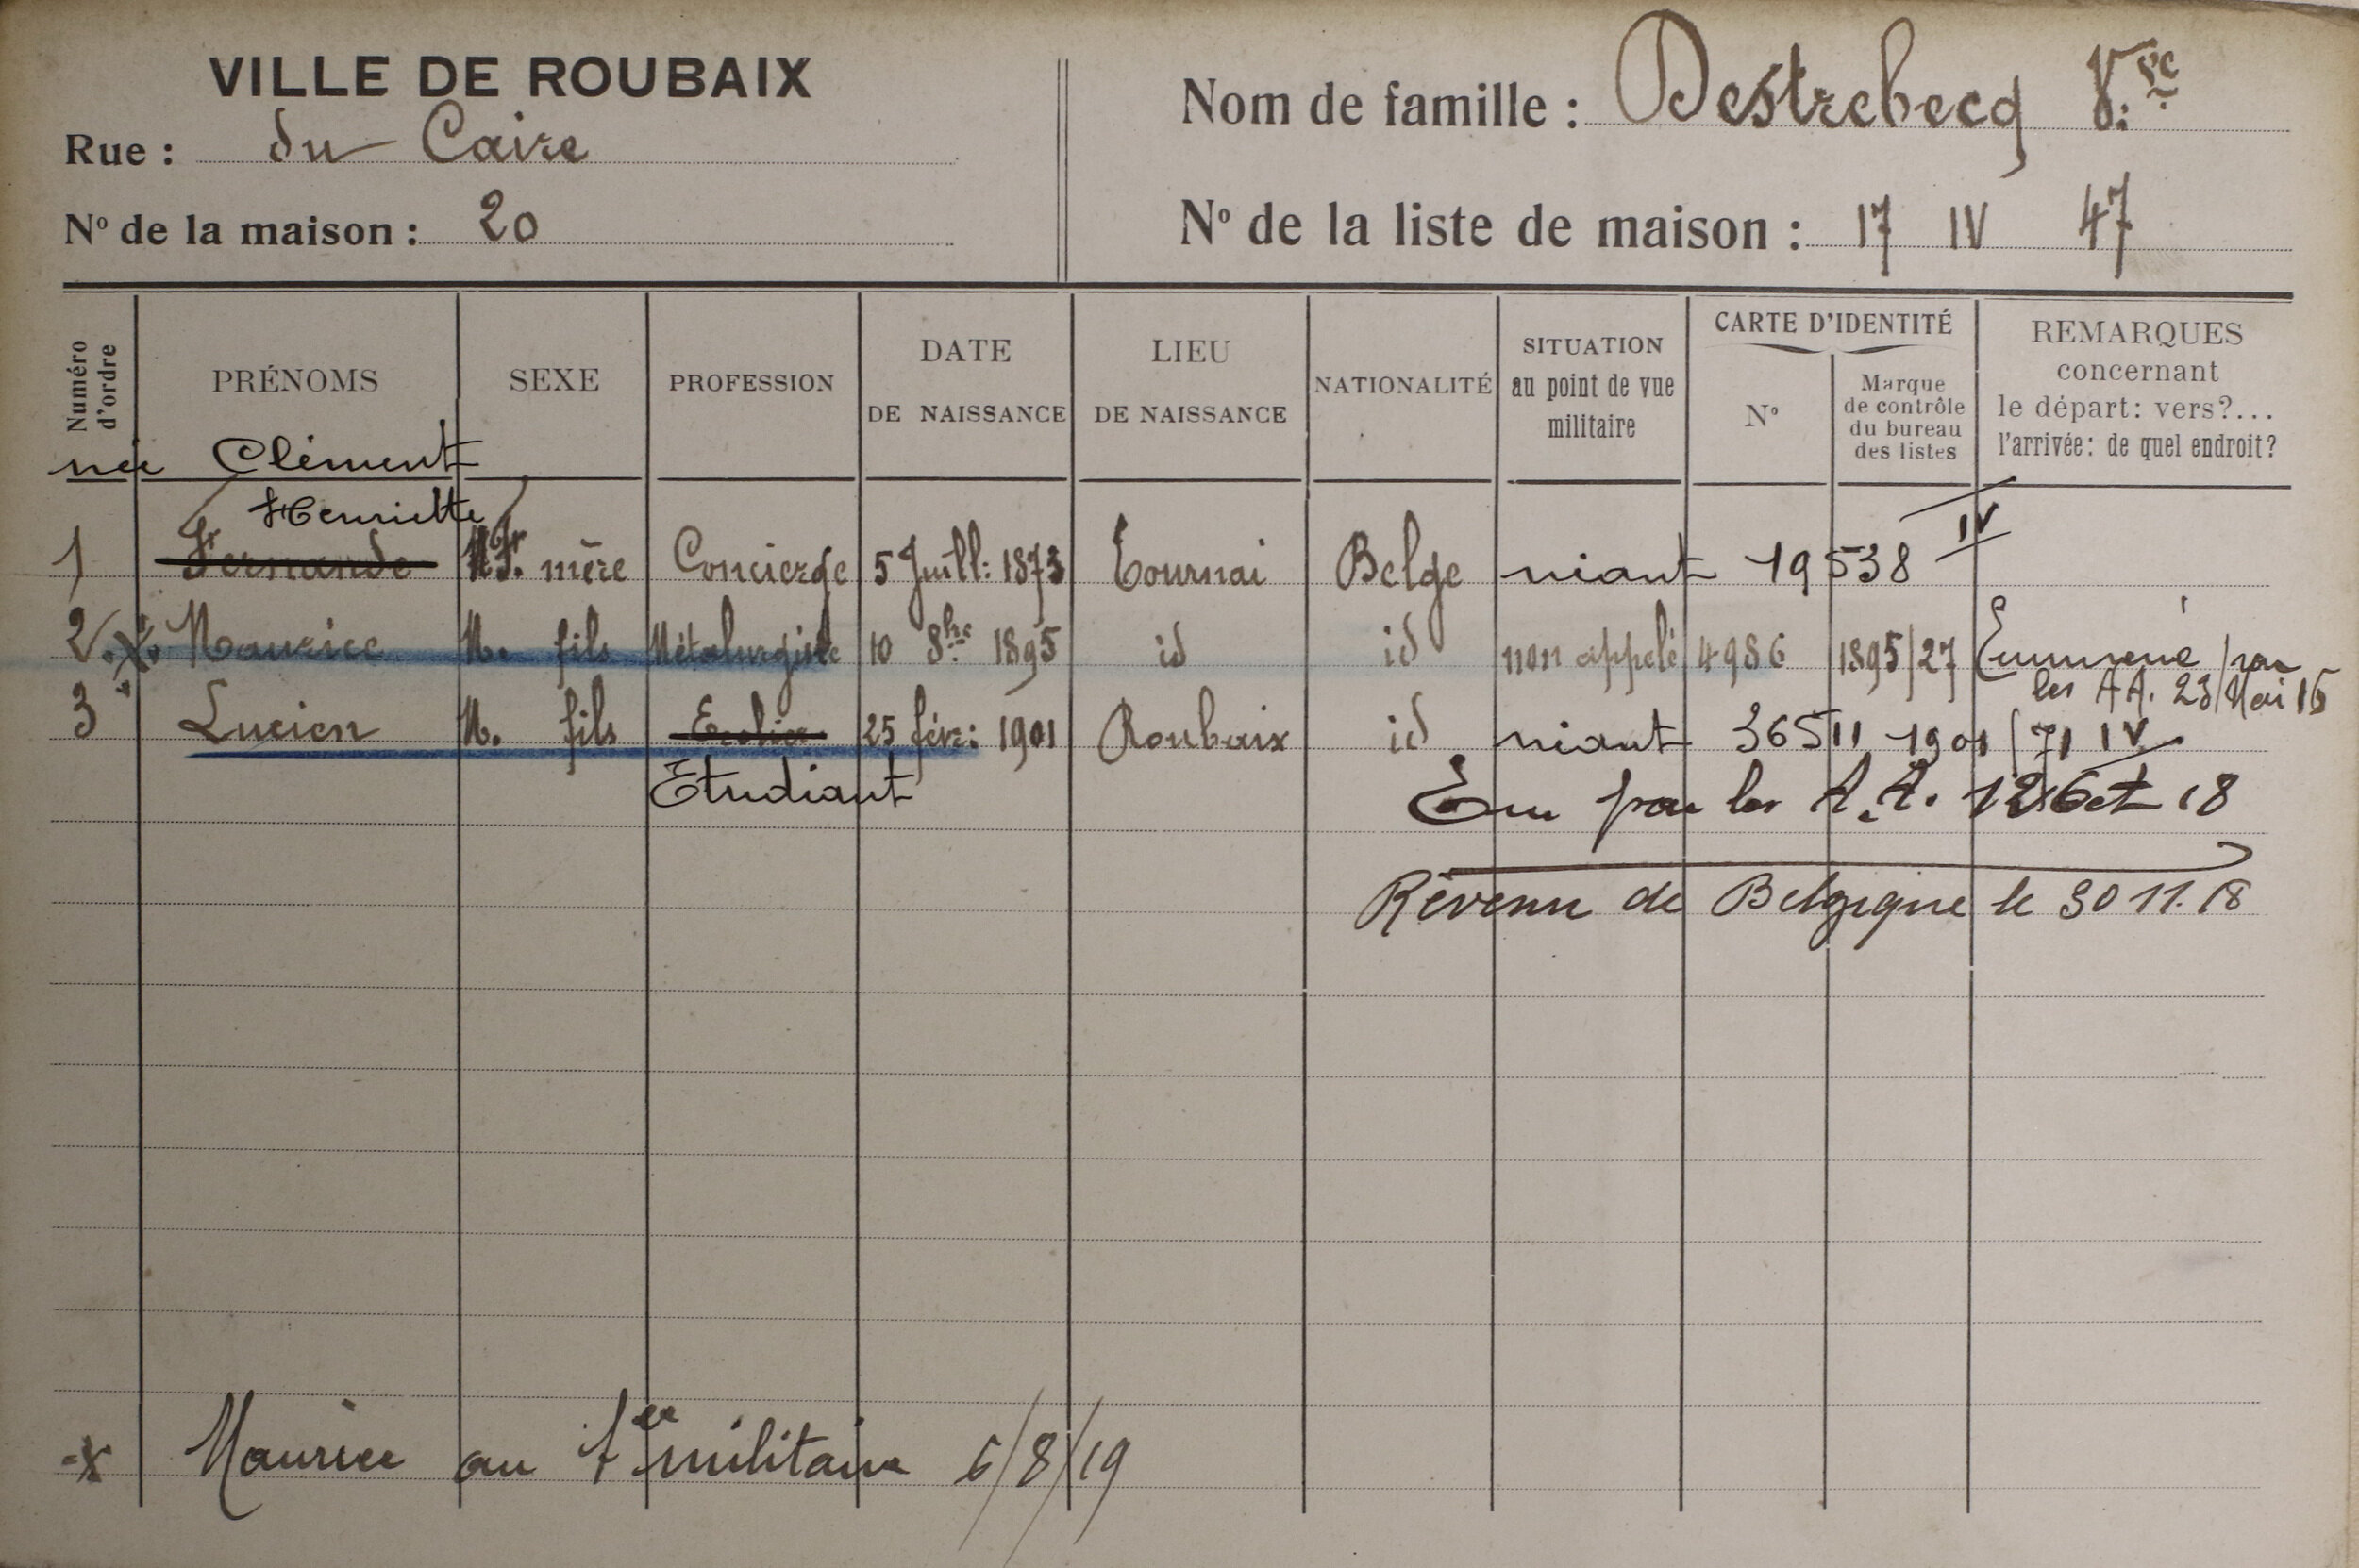 VILLE DE ROUBAIX
Rue : du Caire
Nº de la maison : 20
Nom de famille : Destrebecq Vve
Nº de la liste de maison : 17 IV 47
Numéro d'ordre
PRÉNOMS
SEXE
PROFESSION
DATE DE NAISSANCE
LIEU DE NAISSANCE
NATIONALITÉ
SITUATION au point de vue militaire
CARTE D'IDENTITÉ
Nº
Marque de contrôle du bureau des listes
REMARQUES concernant le départ: vers?... l'arrivée: de quel endroit?
née Clément
Henriette
1 Fernande F. mère Concierge 5 Juill: 1873 Tournai Belge niant 19538 IV
2 x Maurice M. fils Métalurgiste 10 8bre 1895 id id non appelé 4986 1895/27 Emmené par
les AA. 23 Mai 16
3 Lucien M. fils Ecolier 25 févr: 1901 Roubaix id niant 36511 1901/71 IV
Etudiant
Em par les A.A. 12 Oct 18
Revenu de Belgique le 30 11. 18
x Maurice au militaire 6/8/19